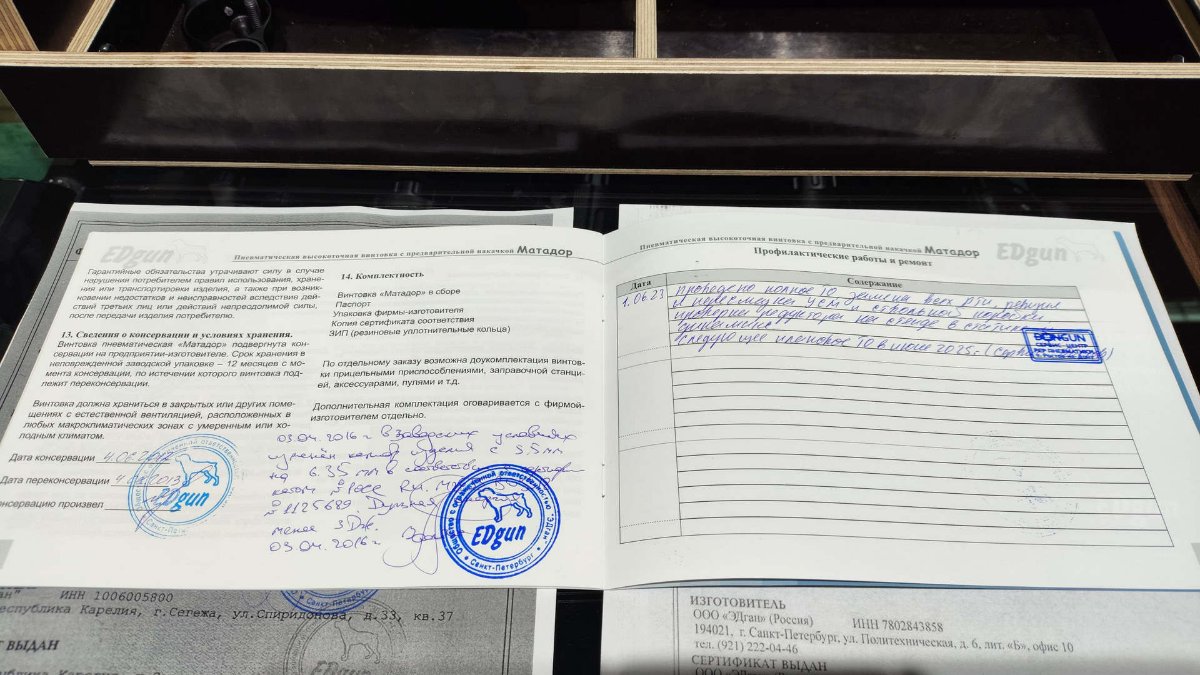 EDgun
Пневматическая высокоточная винтовка с предварительной накачкой Матадор
Гарантийные обязательства утрачивают силу в случае
нарушения потребителем правил использования, хране-
ния или транспортировки изделия, а также при возник-
новении недостатков и неисправностей вследствие дей-
ствий третьих лиц или действий непреодолимой силы,
после передачи изделия потребителю.
13. Сведения о консервации и условиях хранения.
Винтовка пневматическая «Матадор» подвергнута
консервации на предприятии-изготовителе. Срок хранения в
неповрежденной заводской упаковке – 12 месяцев с мо-
мента консервации, по истечении которого винтовка под-
лежит переконсервации.
Винтовка должна храниться в закрытых или других поме-
щениях с естественной вентиляцией, расположенных в
любых макроклиматических зонах с умеренным или хо-
лодным климатом.
Дата консервации
Дата переконсервации
онсервацию произвел
EDgun
14. Комплектность
Винтовка «Матадор» в сборе
Паспорт
Упаковка фирмы-изготовителя
Копия сертификата соответствия
ЗИП (резиновые уплотнительные кольца)
По отдельному заказу возможна доукомплектация винтов-
ки прицельными приспособлениями, заправочной станци-
ей, аксессуарами, пулями и т.д.
Дополнительная комплектация оговаривается с фирмой-
изготовителем отдельно.
03.04.2016 г в заводских условиях
калибр изделия с 5.5 мм
на 6.35 мм в соответствии с
№ РОСС RU.
№ 1125689.
менее 3 Дж.
03.04.2016 г.
Общество с ограниченной ответственностью "ЭДган"
EDgun
Санкт-Петербург
Пневматическая высокоточная винтовка с предварительной накачкой Матадор
EDgun
Профилактические работы и ремонт
Дата Содержание
1.06.23 проведено полное ТО, замена всех рти, ревизия
и пересмазка УСМ и ствольной коробки
проверка редуктора на стенде в статике
динамике
следующее плановое ТО в июне 2025 г.
BONGUN
СЕРВИС-ЦЕНТР
PCP ПНЕВМАТИКИ
ИНН 1006005800
еспублика Карелия, г.Сегежа, ул.Спиридонова, д.33, кв.37
Т ВЫДАН
ИЗГОТОВИТЕЛЬ
ООО «ЭДган» (Россия) ИНН 7802843858
194021, г. Санкт-Петербург, ул. Политехническая, д. 6, лит. «Б», офис 10
тел. (921) 222-04-46
СЕРТИФИКАТ ВЫДАН